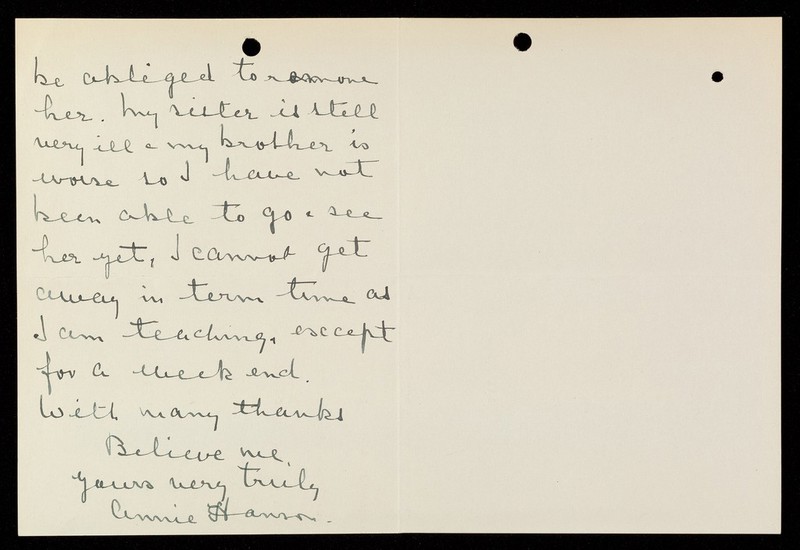 be obliged to remove
her. My sister is still
very ill & my brother is
worse so I have not
been able to go & see
her yet, I cannot get
away in term time as
I am teaching, except
for a week end.
With many thanks
Believe me,
yours very truly
Annie Hanson.